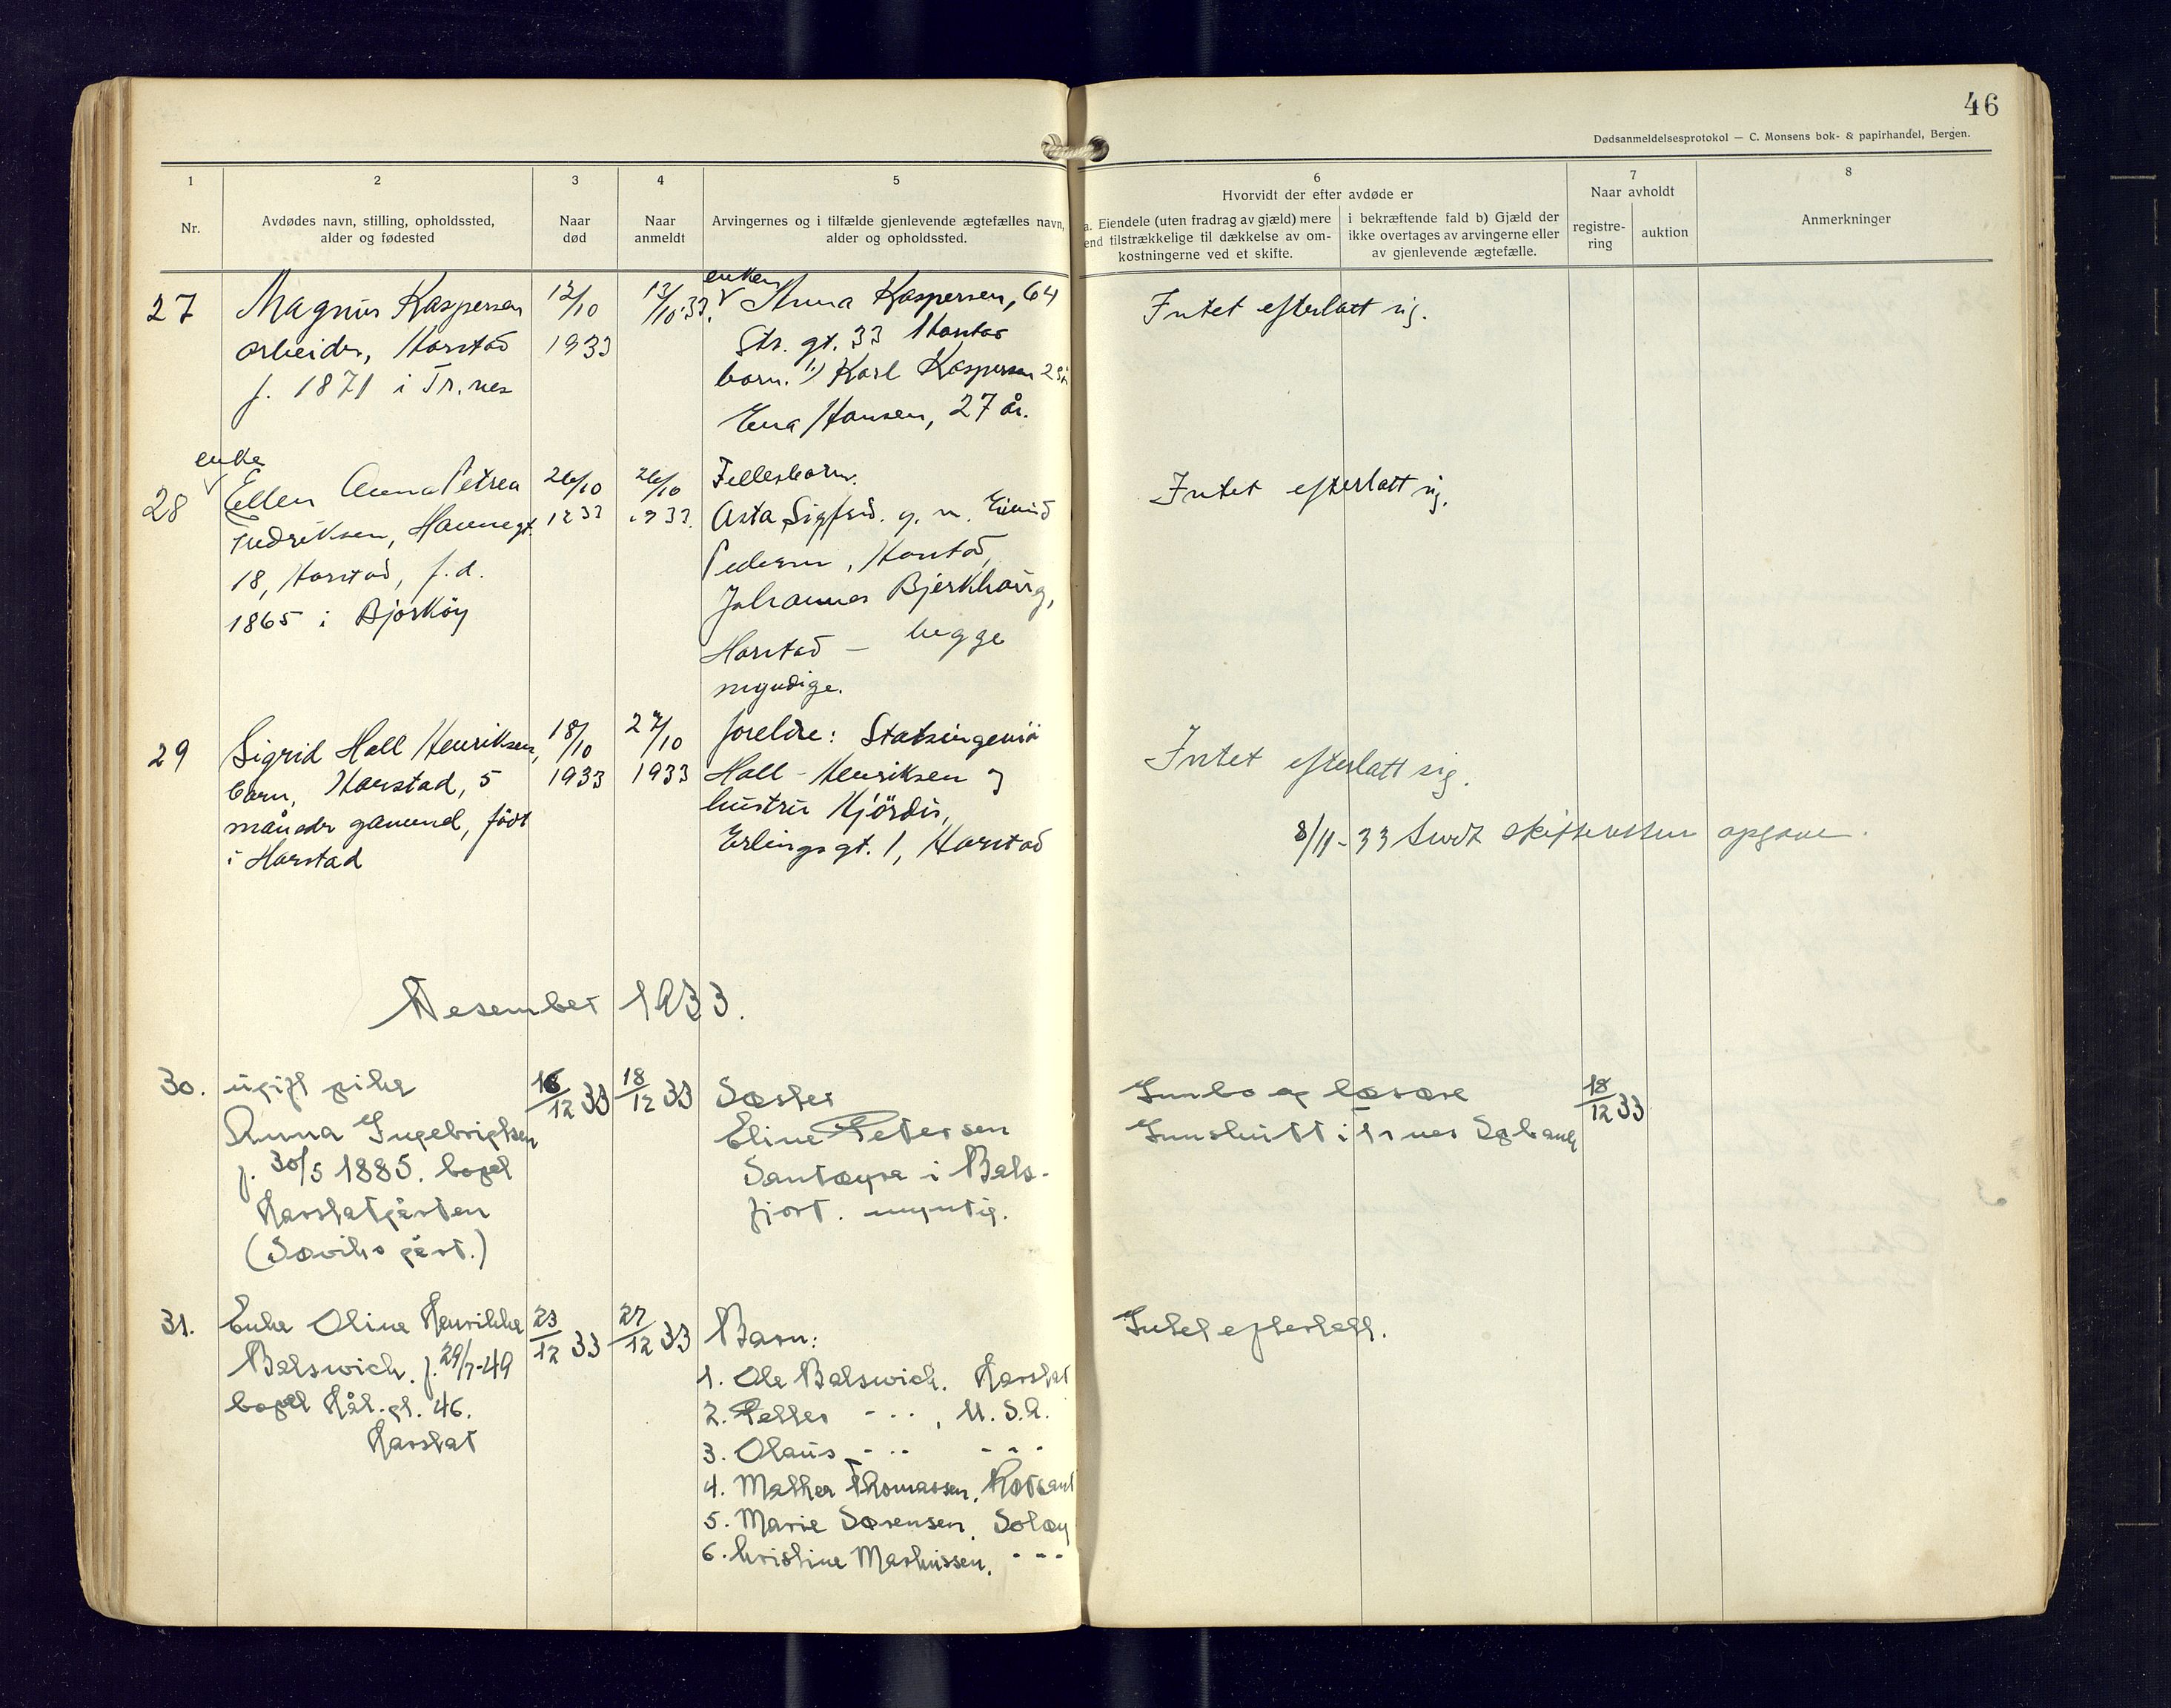 46
Dødsanmeldelsesprotokol — C. Monsens bok- & papirhandel, Bergen.
1
Nr.
2
Avdødes navn, stilling, opholdssted,
alder og fødested
3
Naar
død
4
Naar
anmeldt
5
Arvingernes og i tilfælde gjenlevende ægtefælles navn,
alder og opholdssted.
6
Hvorvidt der efter avdøde er
a. Eiendele (uten fradrag av gjæld) mere
end tilstrækkelige til dækkelse av om-
kostningerne ved et skifte.
i bekræftende fald b) Gjæld der
ikke overtages av arvingerne eller
av gjenlevende ægtefælle.
7
Naar avholdt
registre-
ring
auktion
8
Anmerkninger
27
Magnus Kaspersen
arbeider, Harstad
f. 1871 i Tr.nes
12/10
1933
13/10.33.
enken
Anna Kaspersen, 64
Str. gt. 33 Harstad
barn. 1) Karl Kaspersen
Hansen, 27 år.
Intet efterlatt sig.
28
enke
Ellen Anna Petrea
Fredriksen, Havnegt.
18, Harstad, f.d.
1865 i Bjarkøy
26/10
1933
26/10
1933.
Fellesbarn.
Asta Sigfrid. g. m. Eivind
Pedersen, Harstad,
Johannes Bjerkhaug,
Harstad — begge
myndige.
Intet efterlatt sig.
29
Sigrid Hall Henriksen,
barn, Harstad, 5
måneder gammel, født
i Harstad
18/10
1933
27/10
1933
foreldre: Statsingeniø
Hall-Henriksen og
hustru Hjördis,
Erlingsgt. 1, Harstad
Intet efterlatt sig.
8/11-33 sendt skifteretten opgave.
Desember 1933.
30.
ugift pike
Anna Ingebrigtsen
f. 30/5 1885. bopel
Harstadgården
(Søviks gård.)
16/12 33
18/12 33
Søster
Eline Petersen
Sandøyra i Bals-
fjord. myndig.
Innbo og løsøre
Innskudd i Tr nes Spbank
18/12 33
31.
Enke Oline Henrikke
Balswich. f. 29/7-49
bopel Håk.gt. 46.
Harstad
23/12 33
27/12 33
Barn:
1. Ole Balswich. Harstad
2. Petter - - - , U.S.A.
3. Olaus - - - - - -
4. Mathea Thomassen, Rotsund
5. Marie Sørensen, Soløy
6. Kristine Markussen, - - -
Intet efterlatt.